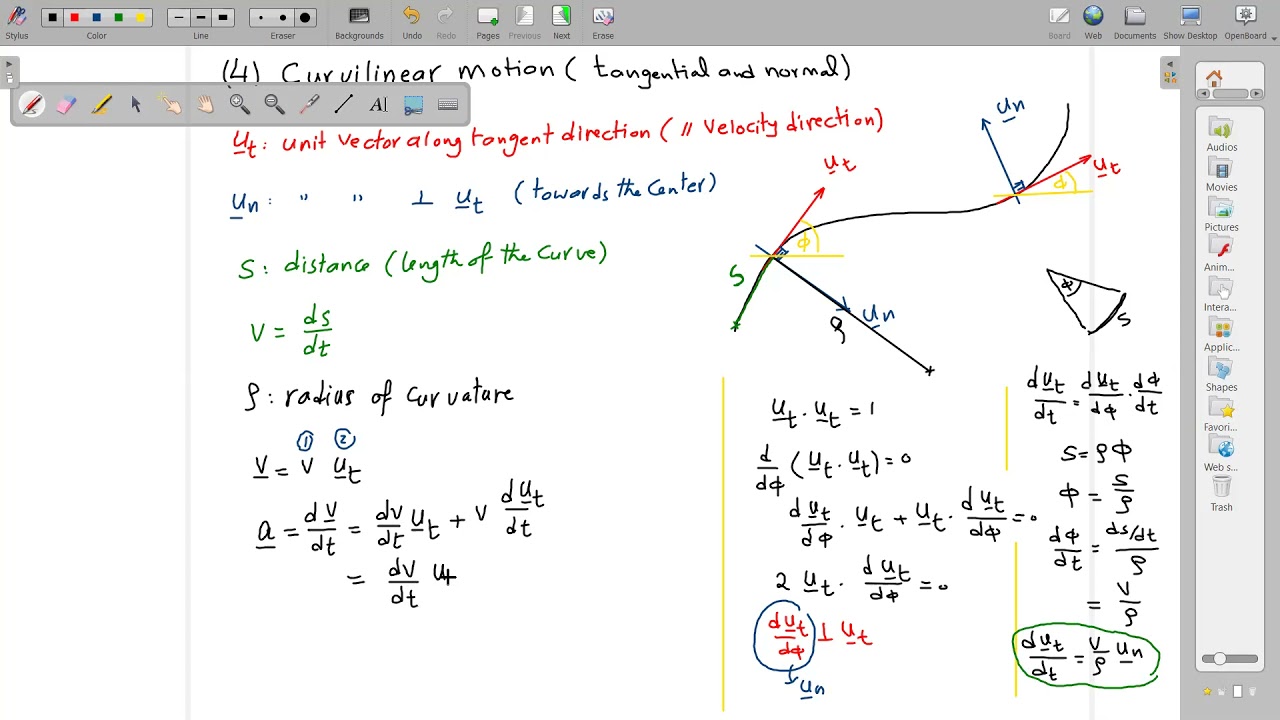 Stylus
Color
Line
Eraser
Backgrounds
Undo
Redo
Pages
Previous
Next
Erase
Board
Web
Documents
Show Desktop
OpenBoard
(4) Curvilinear motion ( tangential and normal)
u̲t : unit vector along tangent direction ( // Velocity direction)
u̲n : " " ⊥ u̲t (towards the center)
S : distance (length of the curve)
V = ds/dt
ρ : radius of curvature
① ②
V̲ = V u̲t
a̲ = dV̲/dt = dv/dt u̲t + V du̲t/dt
= dv/dt ut
u̲t
ϕ
S
u̲n
ρ
u̲n
u̲t
ϕ
ϕ
S
u̲t . u̲t = 1
d/dϕ (u̲t . u̲t) = 0
du̲t/dϕ . u̲t + u̲t . du̲t/dϕ = 0
2 u̲t . du̲t/dϕ = 0
du̲t/dϕ ⊥ u̲t
u̲n
du̲t/dt = du̲t/dϕ . dϕ/dt
S = ρ ϕ
ϕ = S/ρ
dϕ/dt = ds/dt/ρ
= V/ρ
du̲t/dt = V/ρ u̲n
Audios
Movies
Pictures
Anim...
Intera...
Applic...
Shapes
Favori...
Web s...
Trash